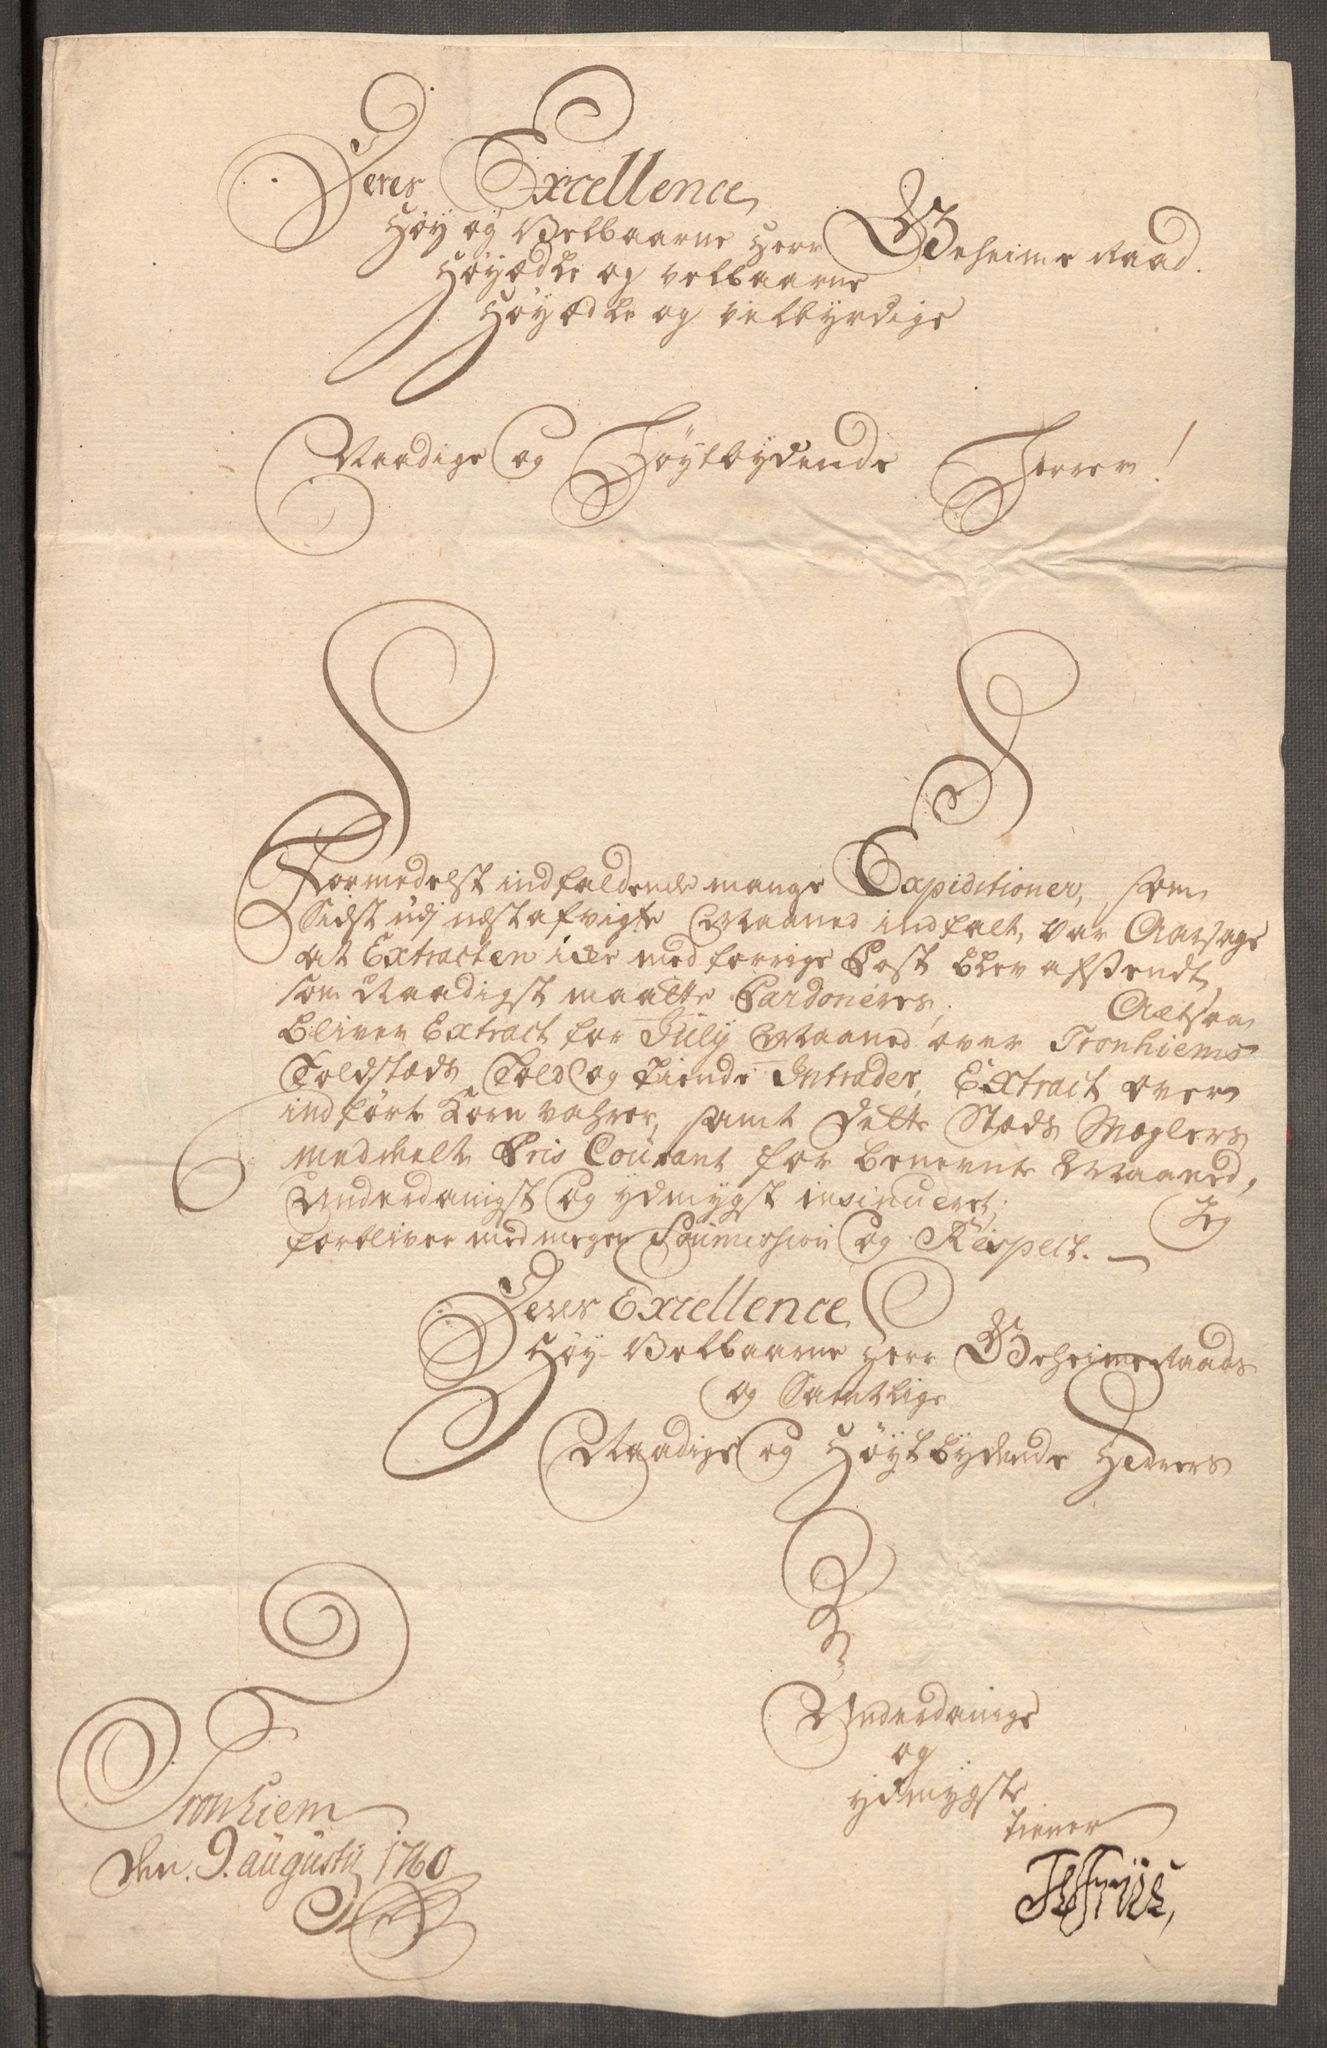 Deres Excellence
Høy og Velbaarne Herr Geheime Raad.
Høyædle og velbaarne
Høyædle og velbyrdige
Naadige og Høytbydende Herrer!
Formedelst indfaldende mange Expeditioner, som
Sidst udj næst afvigte Maaned indfalt, var Aarsage
at Extracten icke med forrige Post blev afsendt,
som Naadigst maatte Pardoneres, Altsaa
bliver Extract for July Maaned over Tronhiems
Toldstæds Told og Tiende Intrader, Extract over
indførte Korn Vahrer, samt dette Stæds Mæglers
meddeelte Pris Courant for benevnte Maaned,
Underdanigst og ydmygst insinueret; Jeg
forbliver med megen Soumission og Respect.
Deres Excellence
Høy Velbaarne Herr Geheime Raads
og Samtlige
Naadige og Høyt bydende Herrers
Underdanige
og
ydmygste
tiener
Tronhiem
den 9. augustij 1760